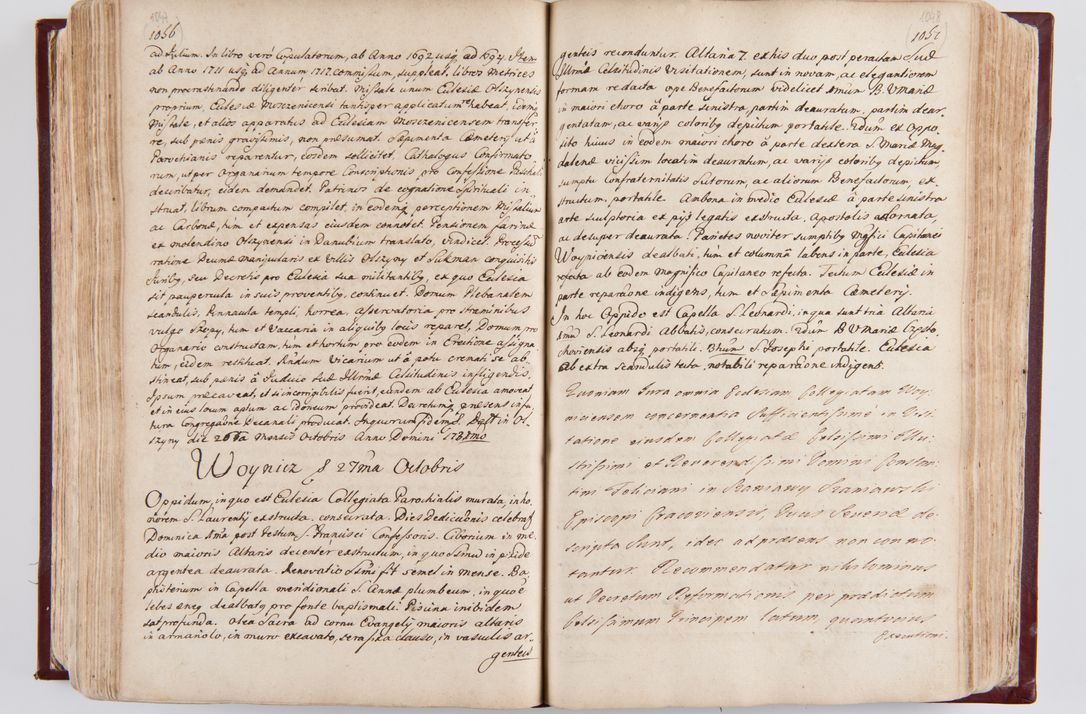 1056
ad Filium. In libro verò Copulatorum, ab Anno 1692 usq; ad 1694. Item
ab Anno 1711 usq; ad Annum 1717 commissum, suppleat, libros Metrices
non procrastinando diligenter scribat. Missale unum Ecclesiæ Olszynensis
proprium, Ecclesiæ Moszczenicensi tanhisper applicatum habeat, eademq;
Missale, et alios apparatus ad Ecclesiam Moszczenicensem transfer
re, sub pænis gravissimis, non præsumat. Sæpimenta Cæmeterij ut à
Parochianis reparentur, eosdem sollicitet. Cathalogus Confirmato
rum, ut per Organarium tempore Conscriptionis, pro Confessione Paschali
describatur, eidem demandet. Patrinos de cognatione Spirituali in
struat, librum compactum compilet, in eodemq; perceptionem Missalium
ac Carbonæ, tùm et expensas eiusdem connotet. Pensionem farinæ
ex molendino Olszynensi in Danubium translato, vindicet. Processû
ratione Decimæ manipularis ex Villis Olszyny et Sukman conquisitis
Juribq; seu Decretis pro Ecclesia sua militantibq; ex quo Ecclesia
sit paupercula in suis proventibq; continuet. Domum Plebanalem
scandulis, Pinnacula templi, horrea, asservatoria pro straminibus
vulgo Szopy, tum et Vaccaria in aliquibq; locis reparet, Domum pro
Organario constructam, tùm et hortum pro eodem in Erectione assigna
tum, eidem restituat. Rñdum Vicarium ut à potu cremati se ab
stineat, sub pænis à Judicio suæ Illrmæ Celsitudinis infligendis,
Ipsum præcaveat, et si incorrigibilis fuerit, eundem ab Ecclesia amoveat
et in eius locum aptum ac Idoneum provideat. Decretumq; præsens in fu
tura Congregaõne Decanali producat. In quorum fidem &. Dat̃ in Ol
szyny die 26ta Mensis Octobris Anno Domini 1727mo
Woynicz & 27ma Octobris
Oppidum, in quo est Ecclesia Collegiata Parochialis murata, in ho
norem S. Laurentij exstructa, consecrata. Dies Dedicaõnis celebraṫ
Dominica 1ma post Festum S. Francisci Confessoris. Ciborium in me
dio maioris Altaris decenter exstructum, in quo Ssmũ in pixide
argentea deaurata. Renovatio Ssmi fit semel in mense. Ba
ptisterium in Capella meridionali S. Annæ plumbeum, in quo è
lebes æneq dealbatq pro fonte baptismali Piscina inibidem
sat profunda. Olea Sacra ad cornu Evangelij maioris altaris
in armariolo, in muro excavato, sera fixa clauso, in vasculis ar-
genteis
1057
genteis reconduntur. Altaria 7. ex his duo post peractam Suæ
Illrmæ Celsitudinis Visitationem, sunt in novam, ac elegantiorem
formam redacta ope Benefactorum videlicet Imũm B. V Mariæ
in maiori choro à parte sinistra, partim deauratum, partim dear
gentatum, ac varijs coloribq; depictum portatile. 2dum ex oppo
sito huius in eodem maiori choro à parte dextera S. Mariæ Mag
dalenæ vicissim locatim deauratum, ac varijs coloribq; depictum,
sumptu Confraternitatis Sutorum, ac aliorum Benefactorum, ex
structum, portatile. Ambona in medio Ecclesiæ à parte sinistra
arte sculptoria ex pijs legatis exstructa, Apostolis adornata,
ac desuper deaurata. Parietes noviter sumptibq; Mgfici Capitanei
Woynicensis dealbati, tum et columna labens in parte, Ecclesia
refecta ab eodem Magnifico Capitaneo refecta. Tectum Ecclesiæ in
parte reparaõne indigens, tum et Sæpimenta Cæmeterij.
In hoc Oppido est Capella S. Leonardi, in qua sunt tria Altaria
1mũ S. Leonardi Abbatis, consecratum. 2dũm B V Mariæ Często
choviensis absq; portatili. 3tiũm S. Josephi portatile. Ecclesia
ab extra scandulis tecta, notabili reparaõne indigens.
Quoniam Jura omnia Ecclesiam Collegiatam Woy
nicensem concernentia Sufficientissimè in Visi
tatione eiusdem Collegiatæ Celsissimi Illu
strissimi et Reverendissimi Domini Constan
tini Feliciani in Szaniawy Szaniawski
Episcopi Cracoviensis, Ducis Severiæ de
scripta Sunt, ideo ad præsens non conno
tantur. Recommendatur nihilominus
ut Decretum Reformationis per prædictum
Celsissimum Principem latum, quantocius
Executioni.